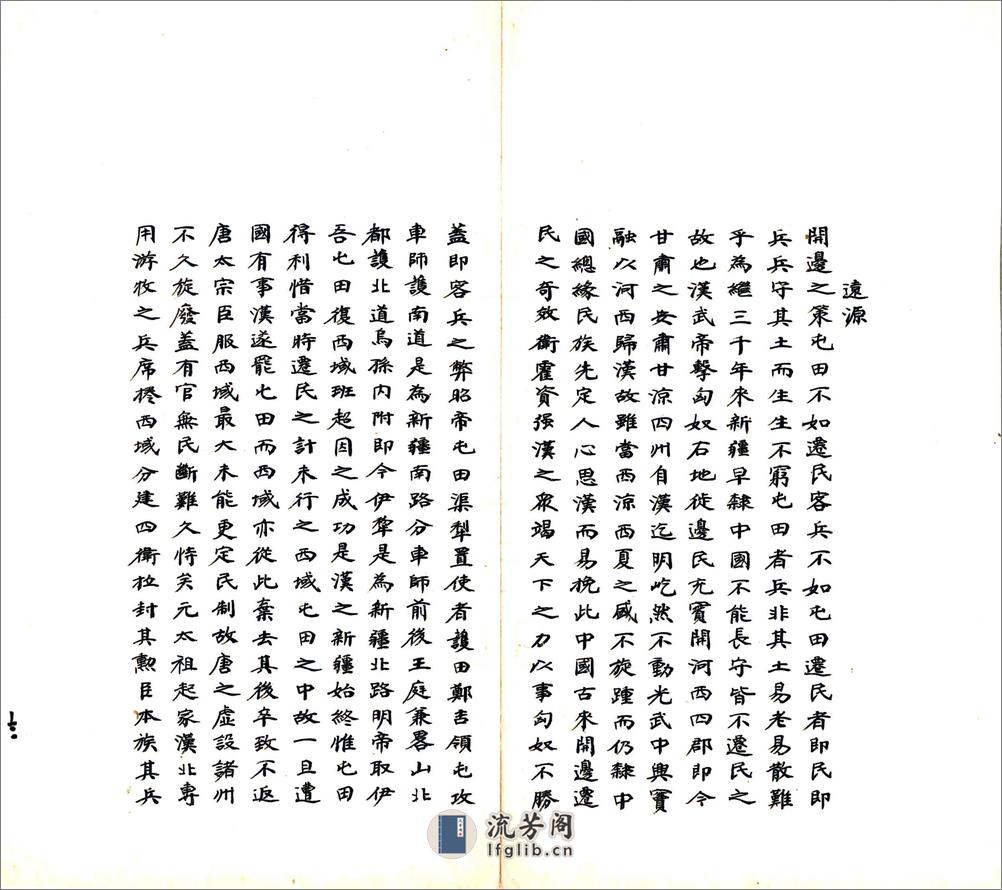 遠源
開邊之策屯田不如遷民客兵不如屯田遷民者即民即
兵兵守其土而生生不窮屯田者兵非其土易老易散難
乎為繼三千年來新疆早隸中國不能長守皆不遷民之
故也漢武帝擊匈奴右地徙邊民充實開河西四郡即今
甘肅之安肅甘涼四州自漢迄明屹然不動光武中興竇
融以河西歸漢故雖當西涼西夏之威不旋踵而仍隸中
國總緣民族先定人心思漢而易挽此中國古來開邊遷
民之奇效衛霍資强漢之眾竭天下之力以事匈奴不勝
蓋即客兵之弊昭帝屯田渠犁置使者護田鄭吉領屯攻
車師護南道是為新疆南路分車師前後王庭兼畧山北
都護北道烏孫內附即今伊犂是為新疆北路明帝取伊
吾屯田復西域班超因之成功是漢之新疆始終惟屯田
得利惜當時遷民之計未行之西域屯田之中故一旦遭
國有事漢遂罷屯田而西域亦從此棄去其後卒致不返
唐太宗臣服西域最大未能更定民制故唐之虛設諸州
不久旋廢蓋有官無民斷難久恃矣元太祖起家漢北專
用游牧之兵席捲西域分建四衛拉封其勲臣本族其兵
流芳阁
lfglib.cn